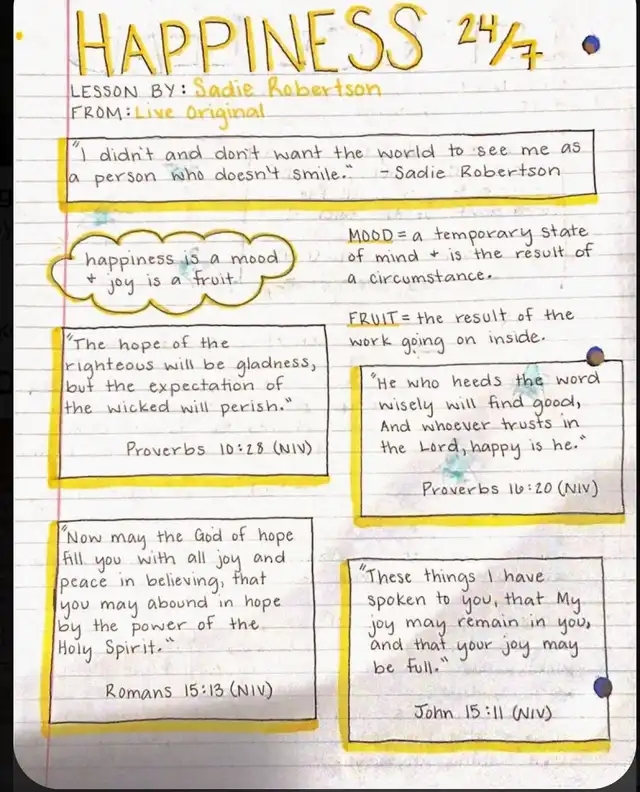 HAPPINESS 24/7
LESSON BY: Sadie Robertson
FROM: Live Original
"I didn't and don't want the world to see me as
a person who doesn't smile." - Sadie Robertson
happiness is a mood
+ joy is a fruit
MOOD = a temporary state
of mind + is the result of
a circumstance.
FRUIT = the result of the
work going on inside.
"The hope of the
righteous will be gladness,
but the expectation of
the wicked will perish."
Proverbs 10:28 (NIV)
"He who heeds the word
wisely will find good,
And whoever trusts in
the Lord, happy is he."
Proverbs 16:20 (NIV)
"Now may the God of hope
fill you with all joy and
peace in believing, that
you may abound in hope
by the power of the
Holy Spirit."
Romans 15:13 (NIV)
"These things I have
spoken to you, that My
joy may remain in you,
and that your joy may
be full."
John 15:11 (NIV)